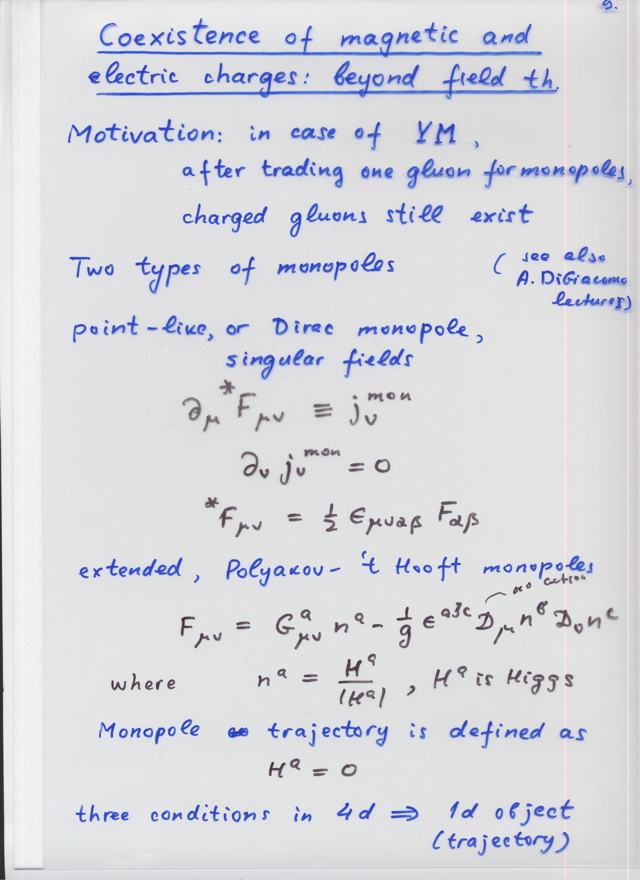 9.
Coexistence of magnetic and
electric charges: beyond field th.
Motivation: in case of YM,
after trading one gluon for monopoles,
charged gluons still exist
Two types of monopoles
( see also
A. DiGiacomo
lectures)
point-like, or Dirac monopole,
singular fields
∂μ *Fμν ≡ jν^mon
∂ν jν^mon = 0
*Fμν = 1/2 εμναβ Fαβ
extended, Polyakov - 't Hooft monopoles
no action
Fμν = G^a_μν n^a - 1/g ε^abc Dμ n^b Dν n^c
where n^a = H^a/|H^a| , H^a is Higgs
Monopole trajectory is defined as
H^a = 0
three conditions in 4d ⇒ 1d object
(trajectory)